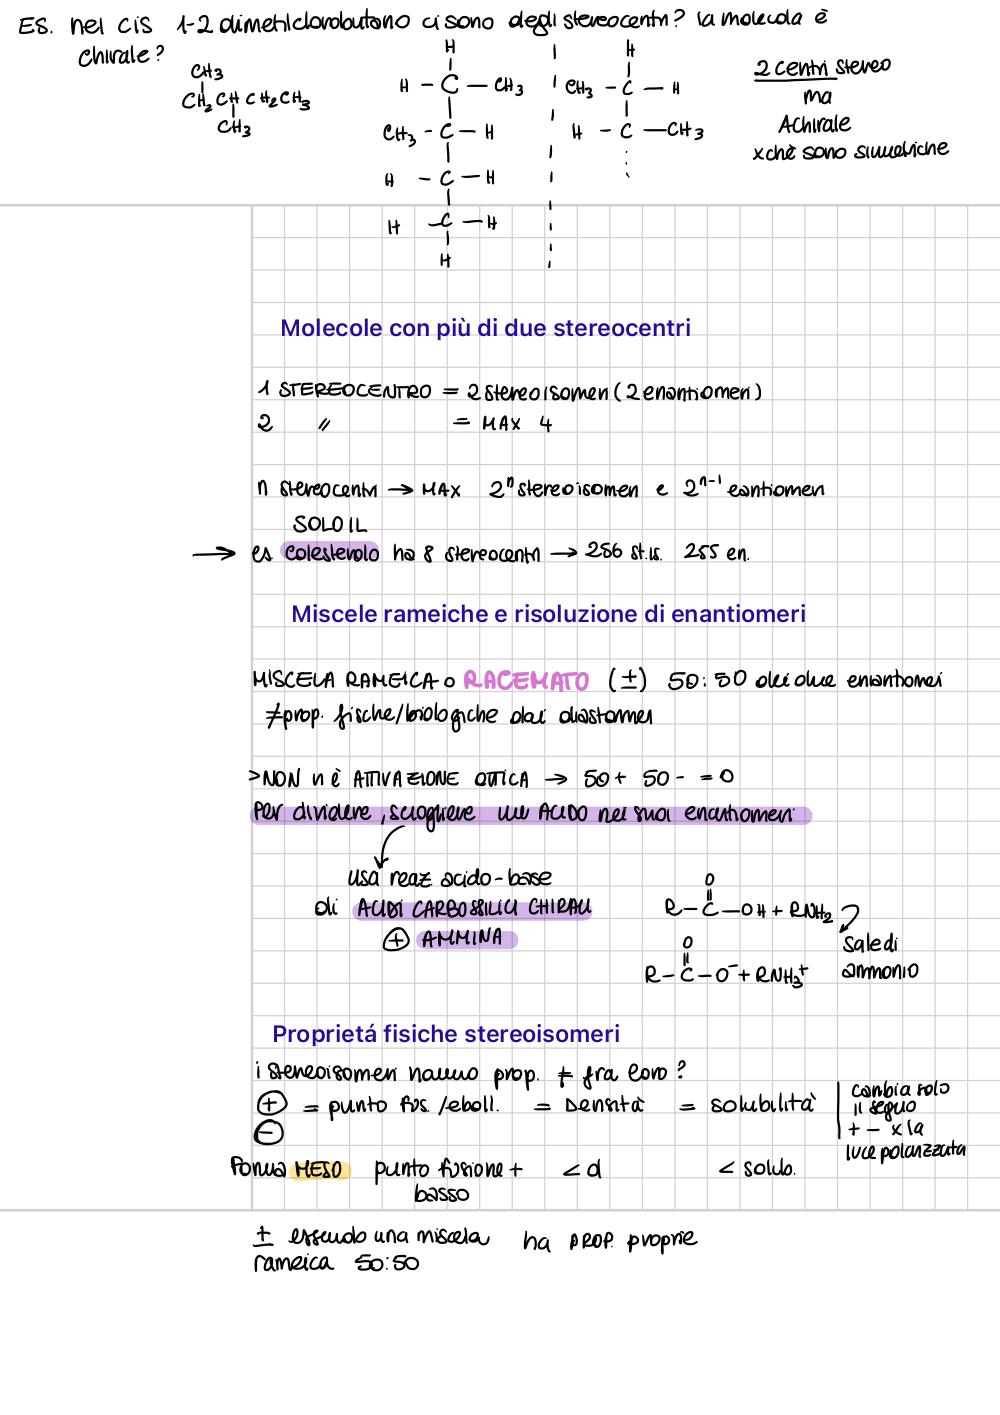 ES. nel cis 1-2 dimetilclorobutano ci sono degli stereocentri? la molecola è
chirale?
CH3
CH2 CH CH2CH3
CH3
H
H - C - CH3
CH3 - C - H
H - C - H
H - C - H
H
H
CH3 - C - H
H - C - CH3
2 centri stereo
ma
Achirale
xchè sono simmetriche
Molecole con più di due stereocentri
1 STEREOCENTRO = 2 stereoisomeri (2 enantiomeri)
2 " = MAX 4
n stereocentri → MAX 2^n stereoisomeri e 2^n-1 eantiomeri
SOLO IL
→ es colesterolo ha 8 stereocentri → 256 st.is. 255 en.
Miscele rameiche e risoluzione di enantiomeri
MISCELA RAMEICA o RACEMATO (±) 50:50 dei due enantiomeri
≠ prop. fisiche/biologiche dai diastomeri
>NON n è ATTIVAZIONE OTTICA → 50+ 50- = 0
Per dividere, sciogliere un ACIDO nei suoi enantiomeri
usa reaz. acido-base
di ACIDI CARBOSSILICI CHIRALI
+ AMMINA
O
R - C - OH + RNH2
Sale di
ammonio
O
R - C - O- + RNH3+
Proprietá fisiche stereoisomeri
i stereoisomeri hanno prop. ≠ fra loro?
+ = punto fus./eboll. = Densità = solubilità
-
cambia solo
il segno
+ - x la
luce polarizzata
Forma MESO punto fusione + < d < solub.
basso
± essendo una miscela ha PROP. proprie
rameica 50:50